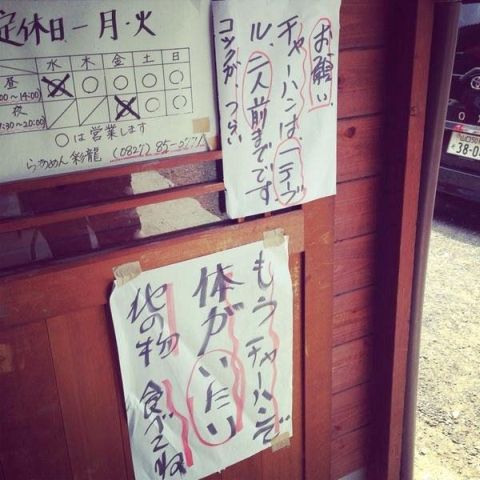 定休日ー月・火
水 木 金 土 日
昼
00〜14:00 × ○ ○ ○ ○
夜
:30〜20:00 ／ ／ × ○ ○
○は営業します
らぁめん彩龍 (0827)85-
お願い、
チャーハンは、一テーブ
ル、二人前までです
コックが、つらい
もうチャーハンで
体がいたい
他の物 食べてね
38-0